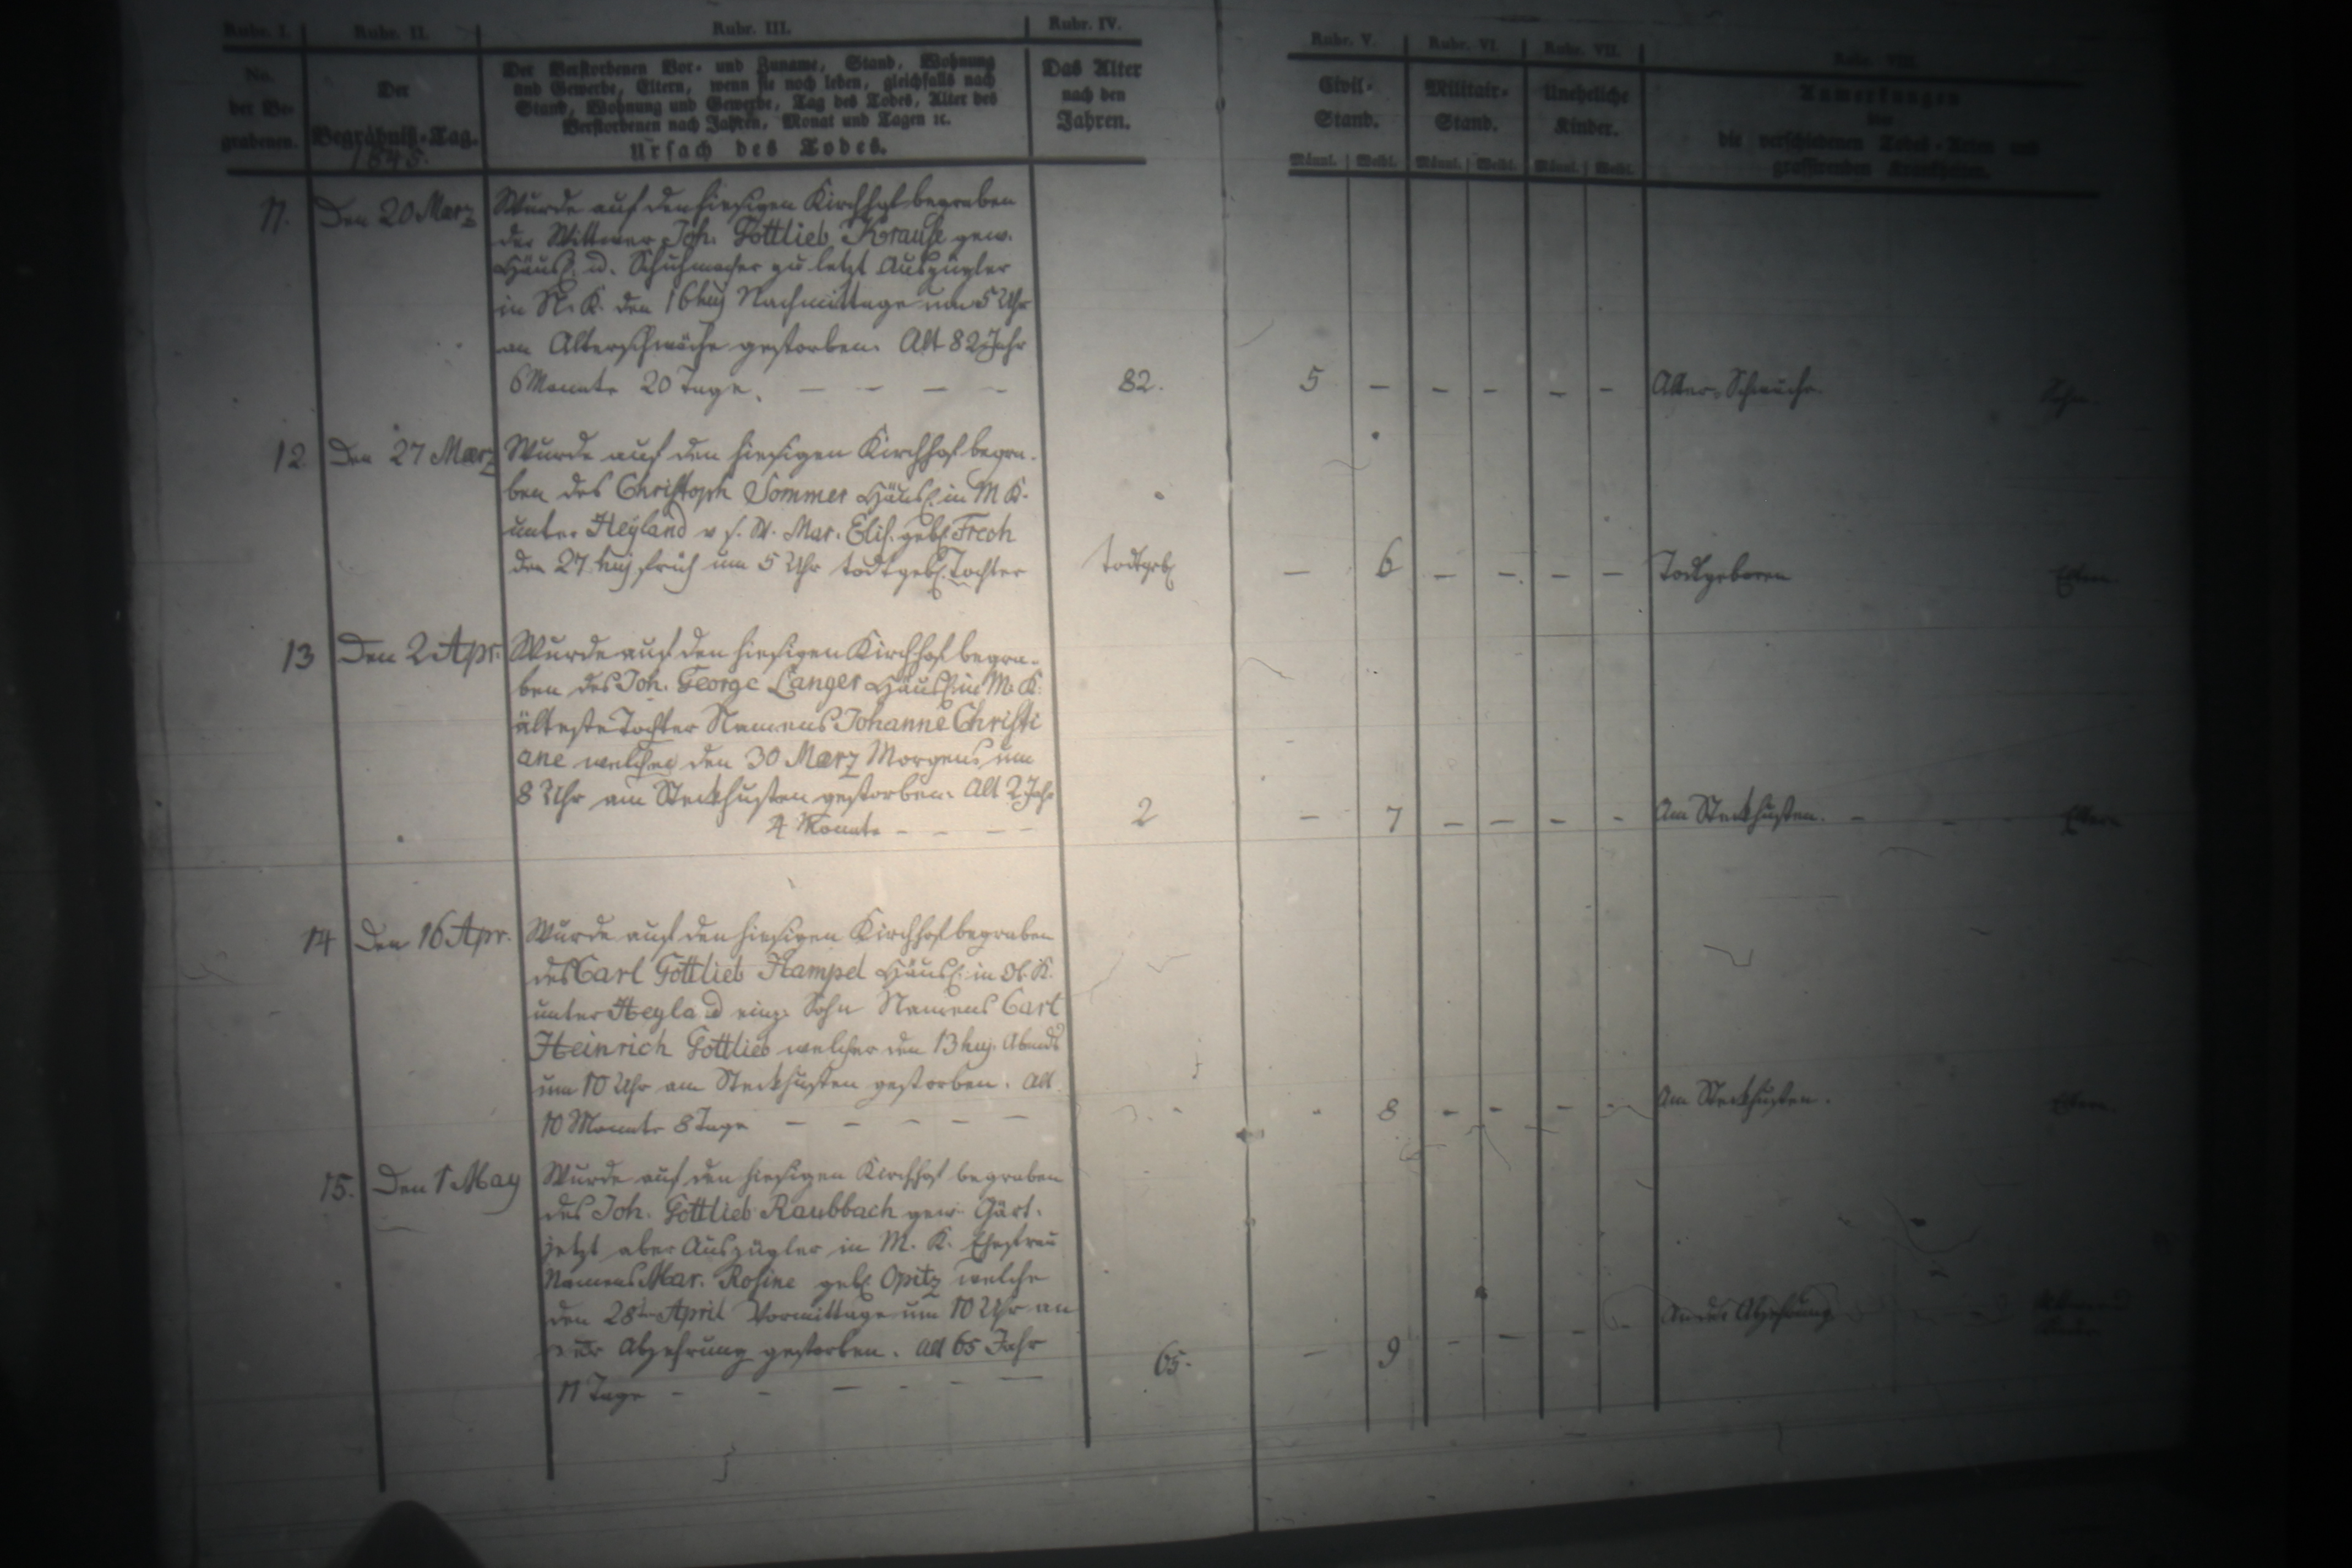 Rubr. I. Rubr. II. Rubr. III. Rubr. IV. Rubr. V. Rubr. VI. Rubr. VII. Rubr. VIII.
No. der Be- grabenen.
Der Begräbniß-Tag.
1845.
Der Verstorbenen Vor- und Zuname, Stand, Wohnung
und Gewerbe, Eltern, wenn sie noch leben, gleichfalls nach
Stand, Wohnung und Gewerbe, Tag des Todes, Alter des
Verstorbenen nach Jahren, Monat und Tagen ꝛc.
Ursach des Todes.
Das Alter
nach den
Jahren.
Civil-
Stand.
Militair-
Stand.
Uneheliche
Kinder.
Anmerkungen
die verschiedenen Todes-Arten und
grassirenden Krankheiten.
Männl. Weibl. Männl. Weibl. Männl. Weibl.
11. Den 20 März
Wurde auf den hiesigen Kirchhof begraben
der Wittwer Joh. Gottlieb Krause gew.
Häusl. u. Schuhmacher zu letzt Auszügler
in N. K. den 16 huj Nachmittags um 5 Uhr
an Alterschwäche gestorben. Alt 82 Jahr
6 Monate 20 Tage. — — — —
82. 5 — — — — — Alter-Schwäche.
12 Den 27 März
Wurde auf den hiesigen Kirchhof begra-
ben des Christoph Sommer Häusl. in M K.
unter Heyland v s. W. Mar. Elis. geb. Frech
den 27 huj früh um 5 Uhr todtgeb. Tochter
todtgeb. — 6 — — — — Todtgeboren Eltern
13 Den 2 Apr.
Wurde auf den hiesigen Kirchhof begra-
ben des Joh. George Langer Häusl. in M. K.
älteste Tochter Namens Johanne Christi
ane welche den 30 März Morgens um
8 Uhr am Steckhusten gestorben. Alt 2 Jahr
4 Monate - - - -
2 — 7 — — — — Am Steckhusten. — — — Eltern
14 Den 16 Apr.
Wurde auf den hiesigen Kirchhof begraben
des Carl Gottlieb Hampel Häusl. in Ob. K.
unter Heyland einz. Sohn Namens Carl
Heinrich Gottlieb welcher den 13 huj. Abends
um 10 Uhr am Steckhusten gestorben. Alt
10 Monate 8 Tage — — — —
- 8 - - - - Am Steckhusten. Eltern.
15. Den 1 May
Wurde auf den hiesigen Kirchhof begraben
des Joh. Gottlieb Raubbach gew. Gärt.
jetzt aber Auszügler in M. K. Ehefrau
Namens Mar. Rosine geb. Opitz welche
den 28ten April Vormittags um 10 Uhr an
der Abzehrung gestorben. Alt 65 Jahr
11 Tage - - — - - —
65. — 9 - — - - An der Abzehrung